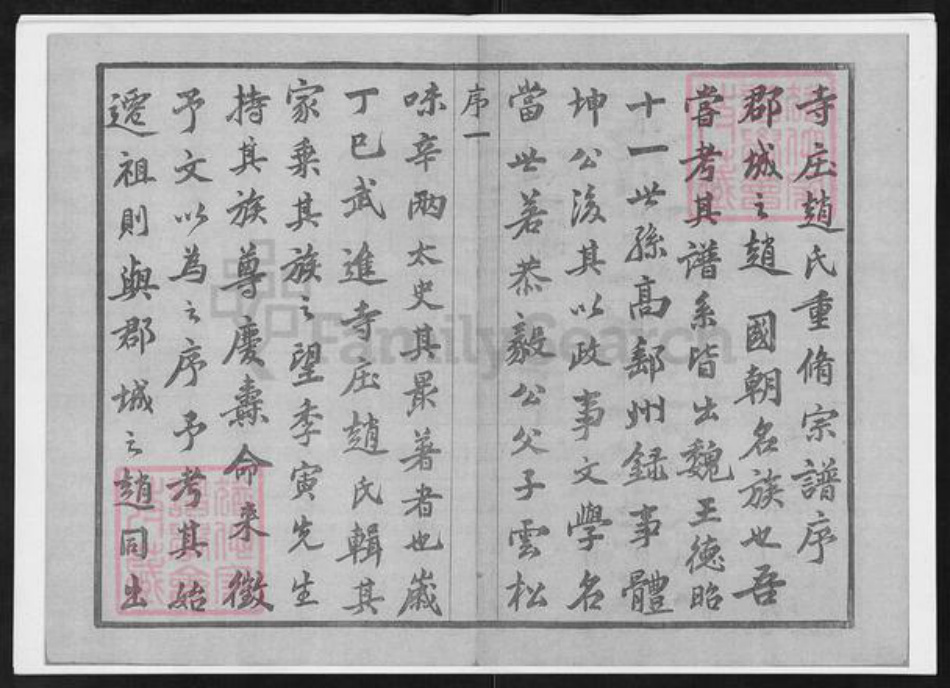 寺庄趙氏重脩宗譜序
郡城之趙 國朝名族也吾
嘗考其譜系皆出魏王德昭
十一世孫高郵州録事體
坤公後其以政事文學名
當世若恭毅公父子雲松
序一
味辛兩太史其最著者也歲
丁巳武進寺庄趙氏輯其
家乘其族之望季寅先生
持其族尊慶燾命來徵
予文以為之序予考其始
遷祖則與郡城之趙同出
FamilySearch